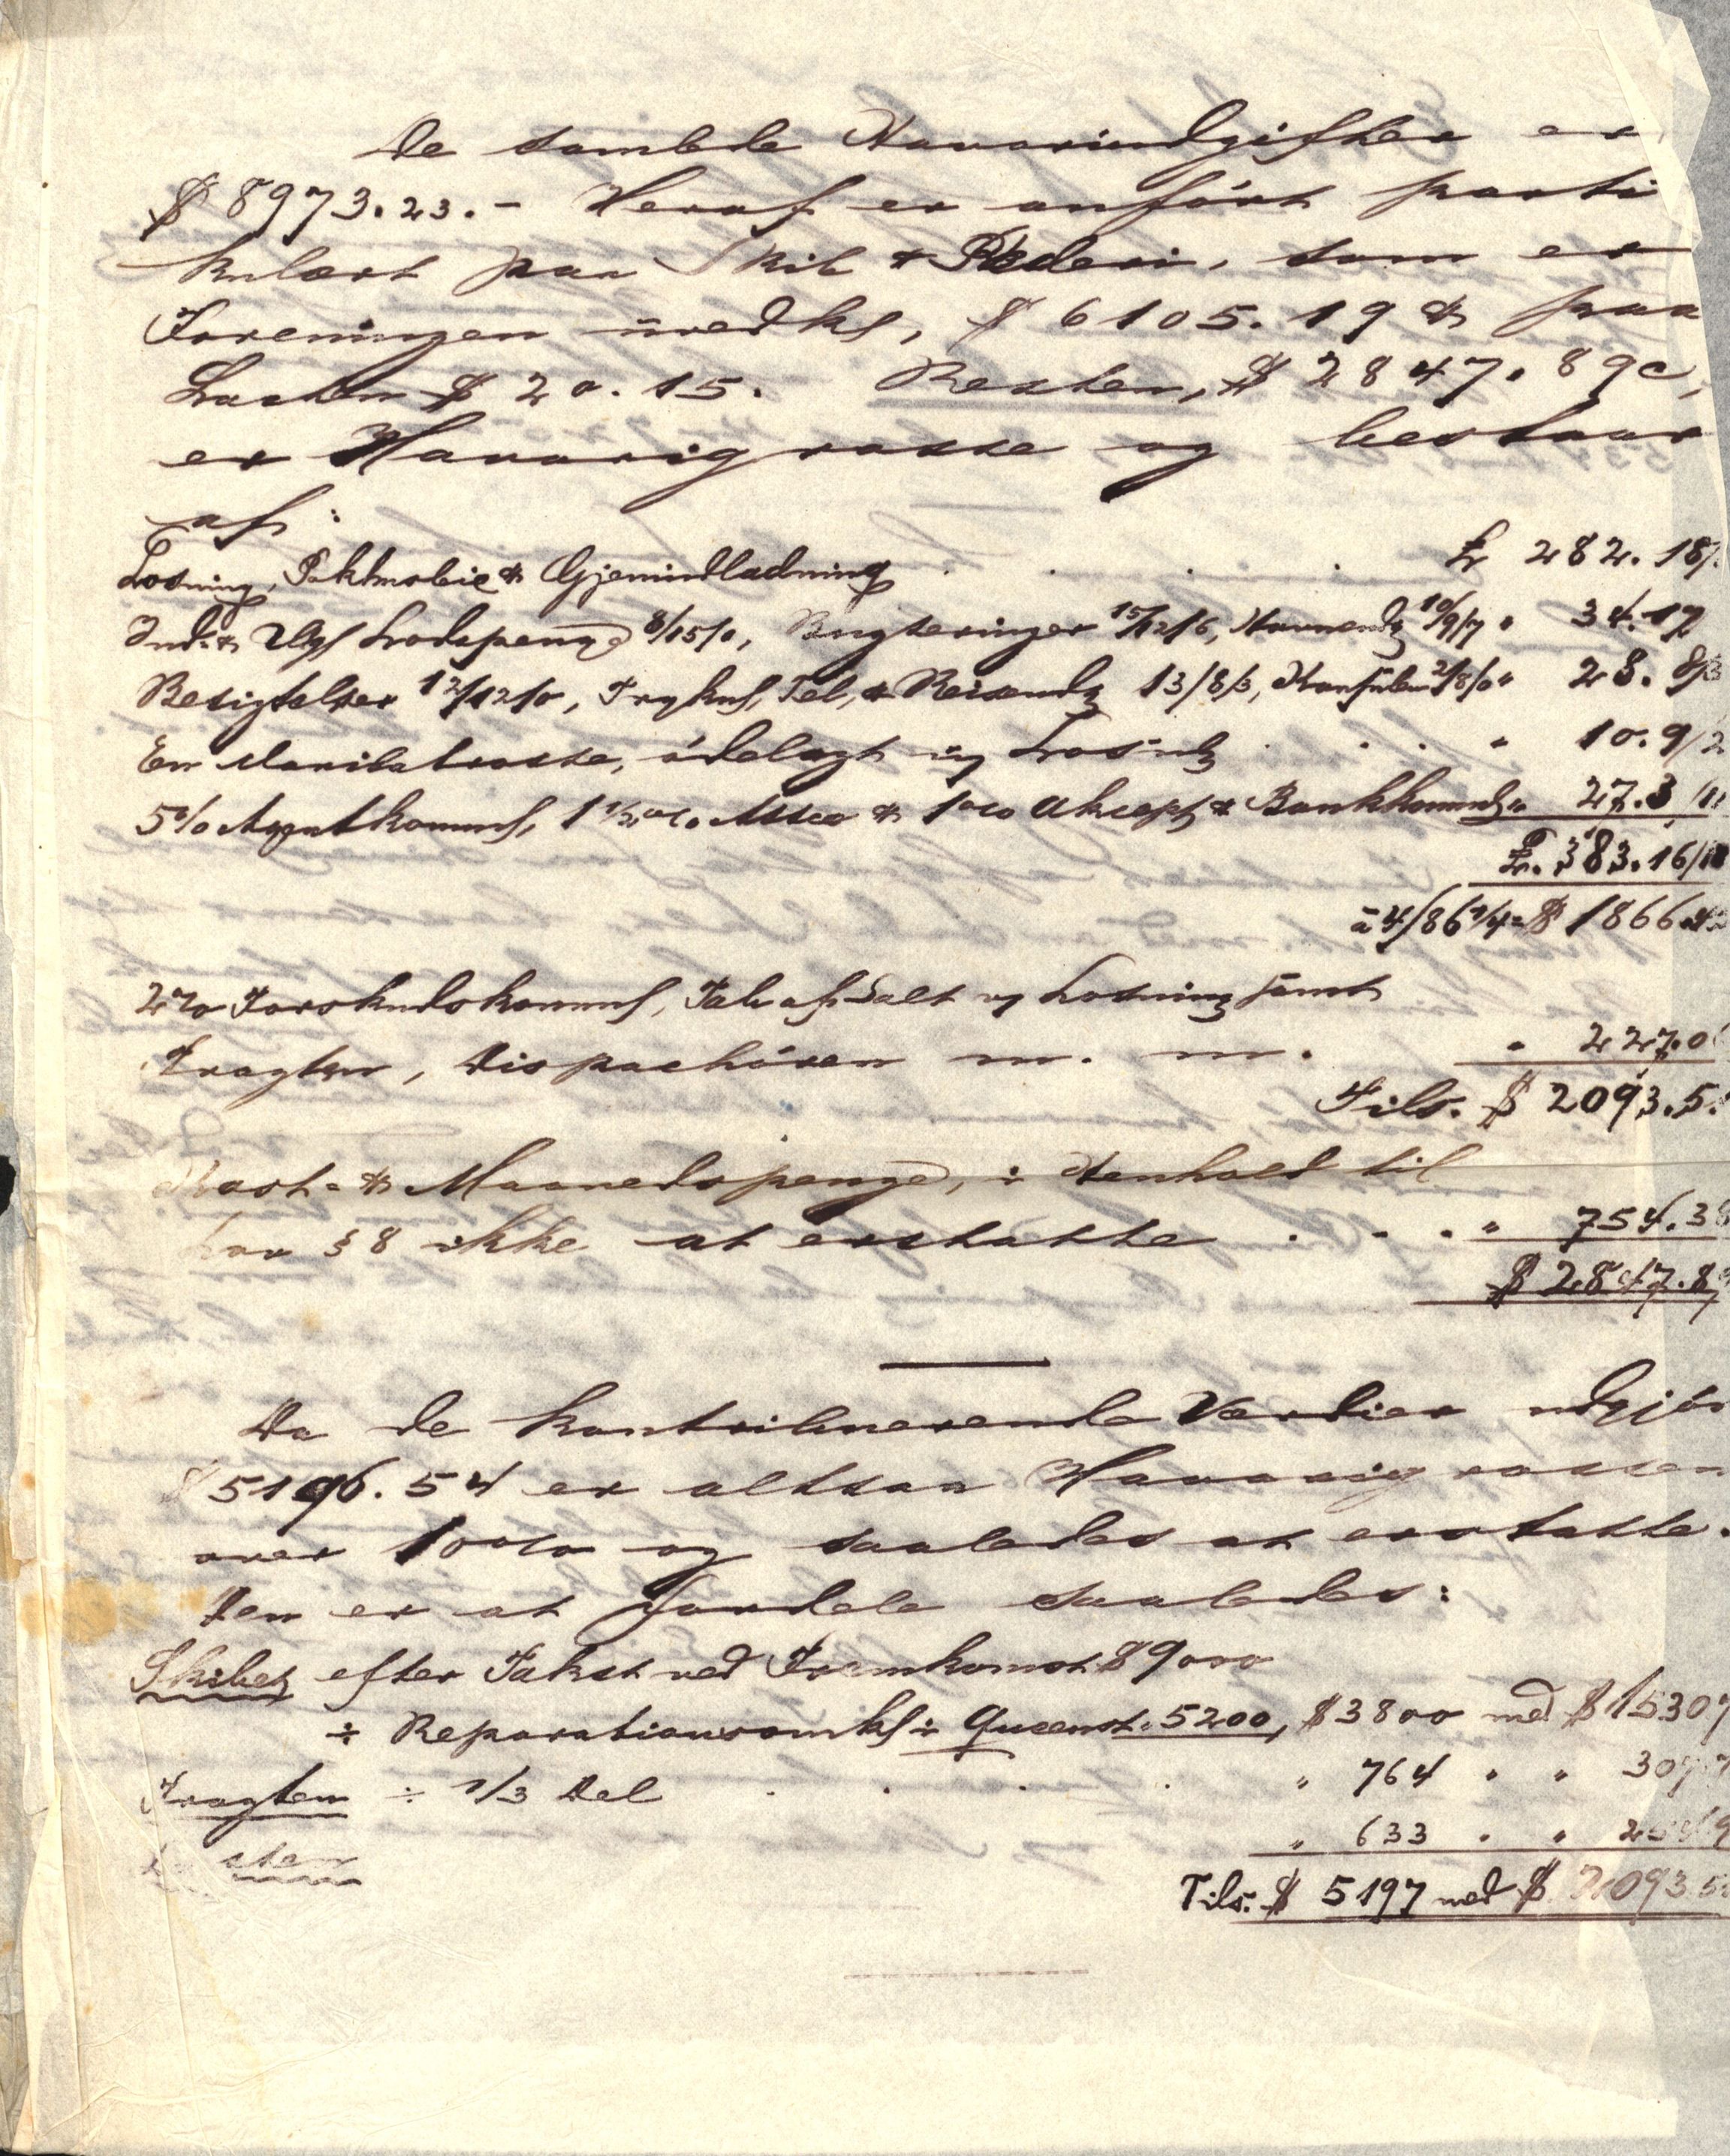 De samlede Havariudgifter er
$ 8973.23.- Heraf er anført parti
kulært paa Skib & Rederi, som er
Foreningen uvedk, $ 6105.19 & paa
Lasten $ 20.15. Resten, $ 2847.89c,
er Havarigrosse og bestaar
af:
Losning, Pakhusleie & Gjenindladning . . . £ 282.18/.
Ind- & Udg Lodspenge 8/15/0, Bugseringer 15/12/6, Havneudg 10/9/7 " 34.17
Besigtelser 12/12/0, Tryks, Tel, & Reiseudg 13/8/3, Konsulen 2/8/0 " 28. 8/3
En Manilatrosse, ødelagt ug Losn . . . " 10.9/2
5% Agentkomms, 1½% Assce & 1% Aksept & Bankkomms " 27.3/11
£. 383.16/11
à 4/86¼ = $ 1866.4
2% Forskudskomms, Tab af Salt ug Losning samt
Fragten, Dispachøren m. m. " 227.0
Tils. $ 2093.5
Kost- & Maanedspenge, i Henhold til
Lov § 8 ikke at erstatte . . . " 754.38
$ 2847.89
Da de kontribuerende Værdier udgjør
$ 5196.54 er altsaa Havarigrossen
over 10% og saaledes at erstatte.
Den er at fordele saaledes:
Skibet efter Takst ved Fremkomst $ 9000
÷ Reparationsomk i Queenst. 5200, $ 3800 med $ 1530 7
Fragten ÷ 1/3 Del . . . " 764 " " 307 7
Lasten " 633 " "
Tils. $ 5197 med $ 2093.5